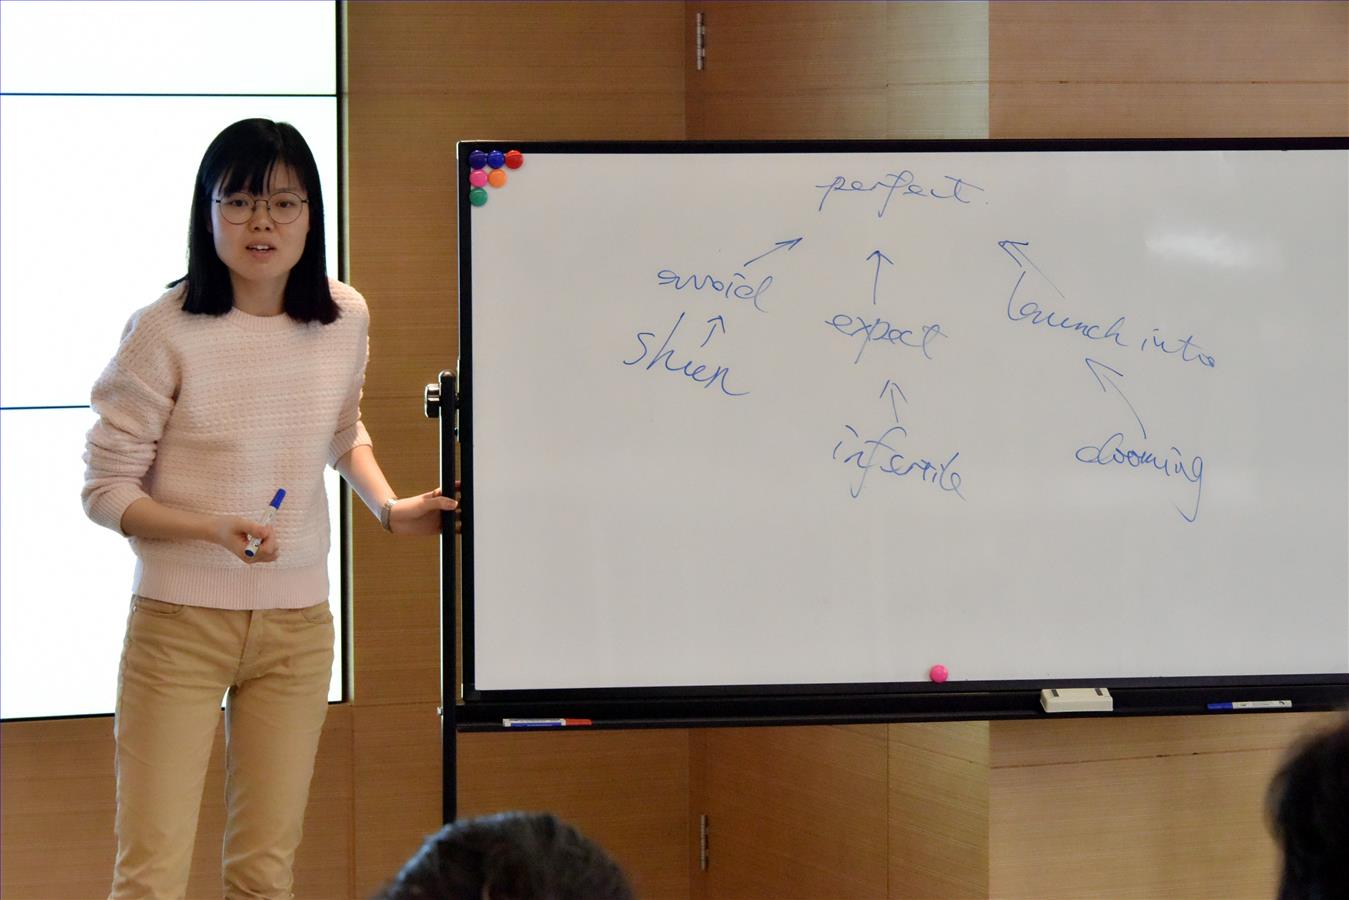 perfect.
avoid
expect
launch into
shun
infertile
dooming